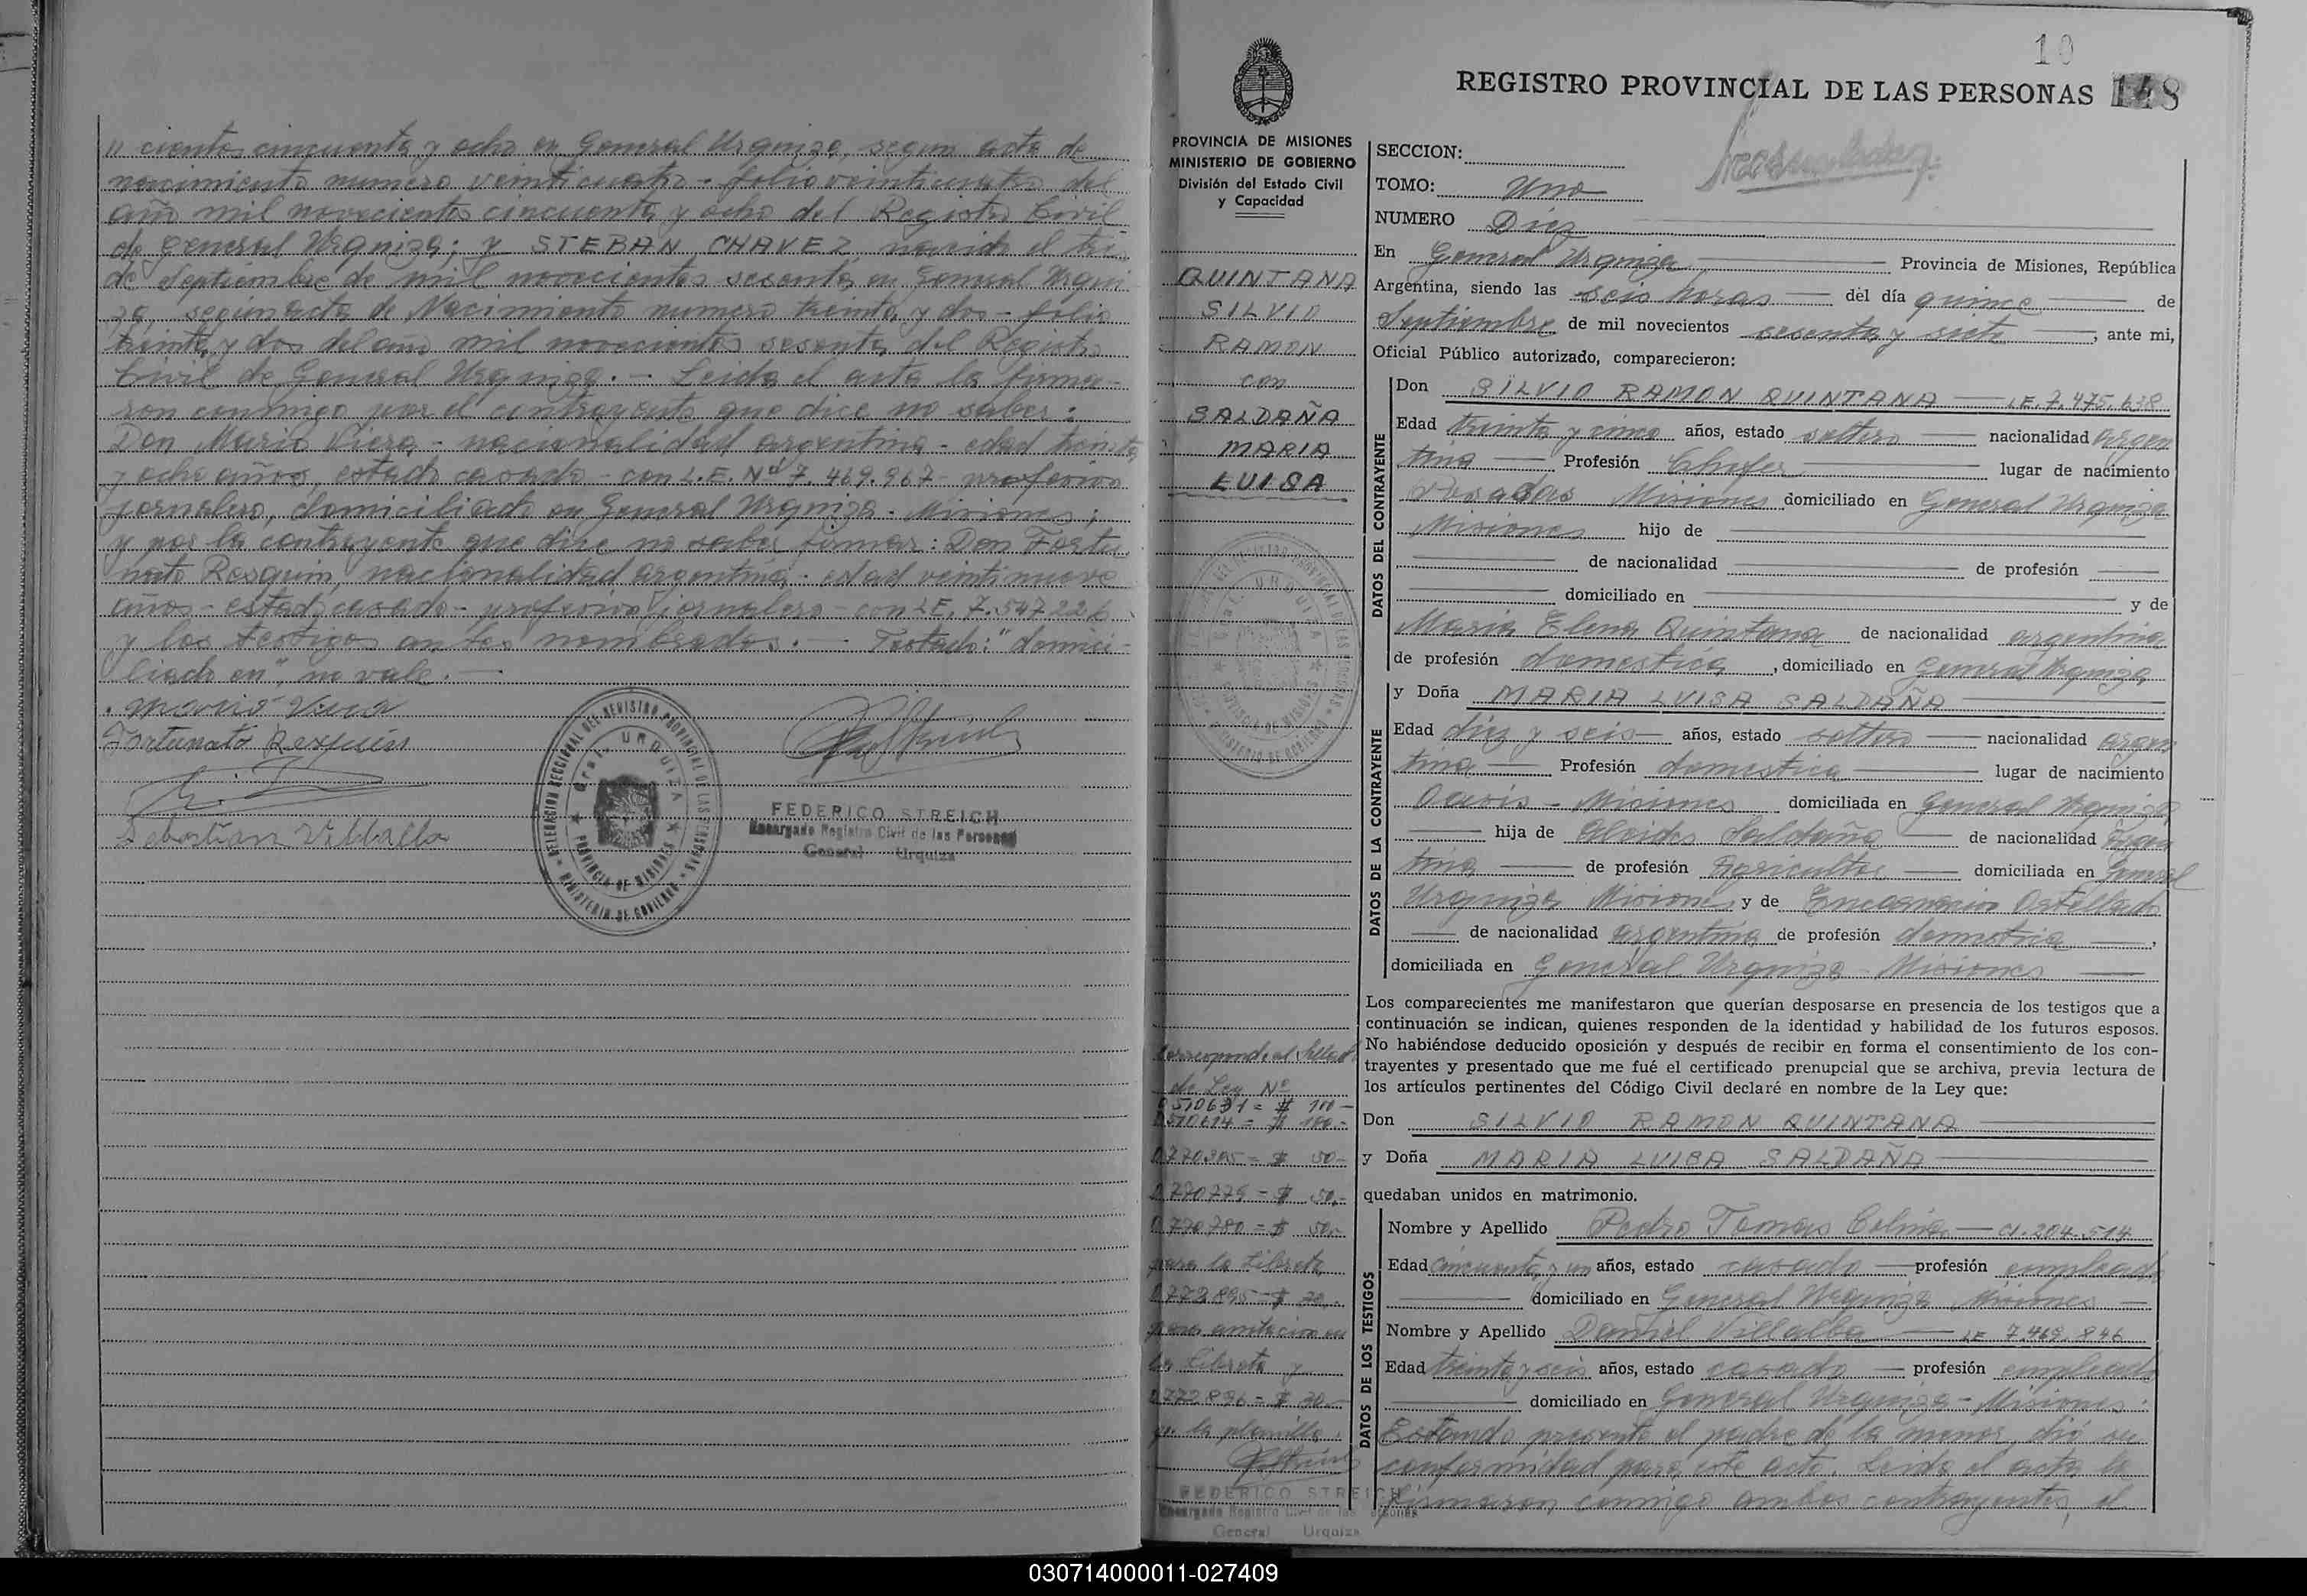 " cientos cincuenta y ocho en General Urquiza, segun acta de
nacimiento numero veinticuatro - folio veinticuatro del
año mil novecientos cincuenta y ocho del Registro Civil
de General Urquiza; y STEBAN CHAVEZ, nacido el tri
de Septiembre de mil novecientos sesenta, en General Urqui
za, segun acta de Nacimiento numero treinta y dos - folio
treinta y dos del año mil novecientos sesenta del Registro
Civil de General Urquiza. - Leida el acta la firma-
ron conmigo por el contrayente que dice no saber:
Don Mario Viera - nacionalidad argentina - edad treinta
y ocho años, estado casado - con L.E. Nº 7.469.967 - profesion
jornalero, domiciliado en General Urquiza - Misiones;
y por la contrayente que dice no saber firmar: Don Fortu
nato Resquin, nacionalidad argentina - edad veintinueve
años - estado casado - profesion jornalero - con L.E. 7.547.226
y los testigos antes nombrados. - Testado: "domici-
liado en", no vale. -
Mario Viera
Fortunato Resquin
Sebastian Villalba
DELEGACION SECCIONAL DEL REGISTRO PROVINCIAL DE LAS PERSONAS
Gral. URQUIZA
PROVINCIA DE MISIONES
MINISTERIO DE GOBIERNO
FEDERICO STREICH
Encargado Registro Civil de las Personas
General Urquiza
10
REGISTRO PROVINCIAL DE LAS PERSONAS 148
PROVINCIA DE MISIONES
MINISTERIO DE GOBIERNO
División del Estado Civil
y Capacidad
QUINTANA
SILVIO
RAMON
con
SALDAÑA
MARIA
LUISA
SECCION:
TOMO: Uno
NUMERO Diez
En General Urquiza Provincia de Misiones, República
Argentina, siendo las seis horas del día quince de
Septiembre de mil novecientos sesenta y siete, ante mi,
Oficial Público autorizado, comparecieron:
DATOS DEL CONTRAYENTE
Don SILVIO RAMON QUINTANA — L.E. 7.475.638
Edad treinta y cinco años, estado soltero nacionalidad argen
tina Profesión Chofer lugar de nacimiento
Posadas Misiones domiciliado en General Urquiza
Misiones hijo de
de nacionalidad de profesión
domiciliado en y de
Maria Elena Quintana de nacionalidad argentina
de profesión domestica, domiciliado en General Urquiza
DATOS DE LA CONTRAYENTE
y Doña MARIA LUISA SALDAÑA
Edad diez y seis años, estado soltera nacionalidad argen
tina Profesión domestica lugar de nacimiento
Misiones domiciliada en General Urquiza
hija de Alcides Saldaña de nacionalidad Argen
tina de profesión Agricultor domiciliada en General
Urquiza Misiones y de Encarnacion
de nacionalidad argentina de profesión domestica,
domiciliada en General Urquiza - Misiones
Los comparecientes me manifestaron que querían desposarse en presencia de los testigos que a
continuación se indican, quienes responden de la identidad y habilidad de los futuros esposos.
No habiéndose deducido oposición y después de recibir en forma el consentimiento de los con-
trayentes y presentado que me fué el certificado prenupcial que se archiva, previa lectura de
los artículos pertinentes del Código Civil declaré en nombre de la Ley que:
Don SILVIO RAMON QUINTANA
y Doña MARIA LUISA SALDAÑA
quedaban unidos en matrimonio.
DATOS DE LOS TESTIGOS
Nombre y Apellido Pedro Tomas — CI. 204.514
Edad cincuenta y un años, estado casado profesión empleado
domiciliado en General Urquiza Misiones
Nombre y Apellido Daniel Villalba — LE 7.469.846
Edad treinta y seis años, estado casado profesión empleado
domiciliado en General Urquiza - Misiones.
Estando presente el padre de la menor, dió su
conformidad para este acto. Leida el acta la
firmaron conmigo ambos contrayentes, el
Corresponde al Sellado
de Ley Nº
510631 = $ 100 -
510614 = $ 100 -
770.305 = $ 50 -
770779 = $ 50,-
770.780 = $ 50,-
para la Libreta
772895 = $ 20,-
para anotacion en
la libreta y
772896 = $ 20 -
p. la planilla.
FEDERICO STREICH
Encargado Registro Civil de las Personas
General Urquiza
030714000011-027409